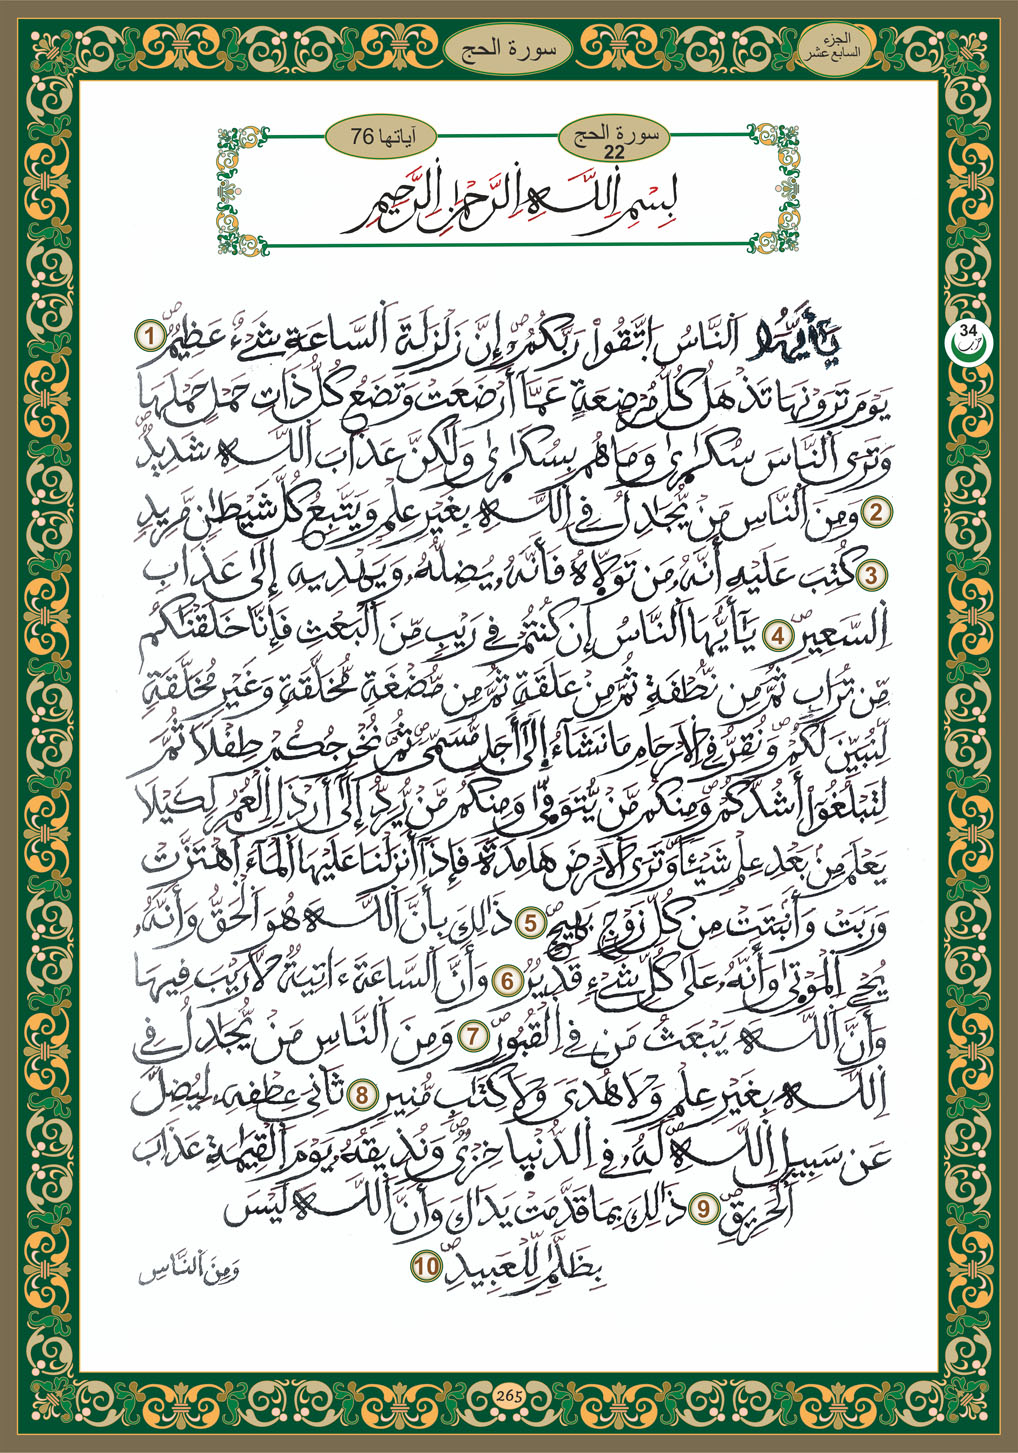 سورة الحج
الجزء
السابع عشر
سورة الحج
22
آياتها 76
بِسْمِ اِللَّهِ اِلرَّحْمَٰنِ اِلرَّحِيمِ
34
يَٰأَيُّهَا اَلنَّاسُ اُتَّقُواْ رَبَّكُمُۥٓ إِنَّ زَلْزَلَةَ اَلسَّاعَةِ شَےْءٌ عَظِيمٌ 1
يَوْمَ تَرَوْنَهَا تَذْهَلُ كُلُّ مُرْضِعَةٍ عَمَّآ أَرْضَعَتْ وَتَضَعُ كُلُّ ذَاتِ حَمْلٍ حَمْلَهَا
وَتَرَى اَلنَّاسَ سُكَٰرَىٰ وَمَا هُم بِسُكَٰرَىٰ وَلَٰكِنَّ عَذَابَ اَللَّهِ شَدِيدٌ
2 وَمِنَ اَلنَّاسِ مَنْ يُّجَٰدِلُ فِے اِللَّهِ بِغَيْرِ عِلْمٍ وَيَتَّبِعُ كُلَّ شَيْطَٰنٍ مَّرِيدٍ
3 كُتِبَ عَلَيْهِ أَنَّهُۥ مَن تَوَلَّاهُ فَأَنَّهُۥ يُضِلُّهُۥ وَيَهْدِيهِ إِلَىٰ عَذَابِ
اِلسَّعِيرِ 4 يَٰٓأَيُّهَا اَلنَّاسُ إِن كُنتُمْ فِے رَيْبٍ مِّنَ اَلْبَعْثِ فَإِنَّا خَلَقْنَٰكُم
مِّن تُرَابٍ ثُمَّ مِن نُّطْفَةٍ ثُمَّ مِنْ عَلَقَةٍ ثُمَّ مِن مُّضْغَةٍ مُّخَلَّقَةٍ وَغَيْرِ مُخَلَّقَةٍ
لِّنُبَيِّنَ لَكُمْ وَنُقِرُّ فِے اِلَارْحَامِ مَا نَشَآءُ اِلَىٰٓ أَجَلٍ مُّسَمّىً ثُمَّ نُخْرِجُكُمْ طِفْلاً ثُمَّ
لِتَبْلُغُوٓاْ أَشُدَّكُمْ وَمِنكُم مَّنْ يُّتَوَفَّىٰ وَمِنكُم مَّنْ يُّرَدُّ إِلَىٰٓ أَرْذَلِ اِلْعُمُرِ لِكَيْلَا
يَعْلَمَ مِنۢ بَعْدِ عِلْمٍ شَيْـٔاً وَتَرَى اَلَارْضَ هَامِدَةً فَإِذَآ أَنزَلْنَا عَلَيْهَا اَلْمَآءَ اَهْتَزَّتْ
وَرَبَتْ وَأَنۢبَتَتْ مِن كُلِّ زَوْجٍ بَهِيجٍ 5 ذَٰلِكَ بِأَنَّ اَللَّهَ هُوَ اَلْحَقُّ وَأَنَّهُۥ
يُحْيِ اِلْمَوْتَىٰ وَأَنَّهُۥ عَلَىٰ كُلِّ شَےْءٍ قَدِيرٌ 6 وَأَنَّ اَلسَّاعَةَ ءَاتِيَةٌ لَّا رَيْبَ فِيهَا
وَأَنَّ اَللَّهَ يَبْعَثُ مَن فِے اِلْقُبُورِ 7 وَمِنَ اَلنَّاسِ مَنْ يُّجَٰدِلُ فِے
اِللَّهِ بِغَيْرِ عِلْمٍ وَلَا هُدىً وَلَا كِتَٰبٍ مُّنِيرٍ 8 ثَانِيَ عِطْفِهِۦ لِيُضِلَّ
عَن سَبِيلِ اِللَّهِ لَهُۥ فِے اِلدُّنْيَا خِزْيٌ وَنُذِيقُهُۥ يَوْمَ اَلْقِيَٰمَةِ عَذَابَ
اَلْحَرِيقِ 9 ذَٰلِكَ بِمَا قَدَّمَتْ يَدَاكَ وَأَنَّ اَللَّهَ لَيْسَ
بِظَلَّٰمٍ لِّلْعَبِيدِ 10
وَمِنَ اَلنَّاسِ
265